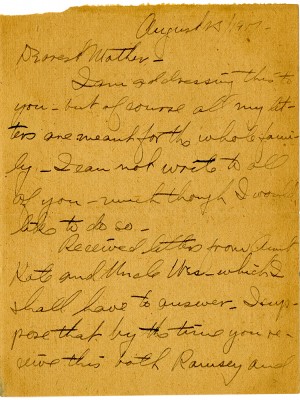 August
Dearest Mother -
I am addressing this to
you - but of course all my let-
ters are meant for the whole fami-
ly - I can not write to all
of you - much though I would
like to do so -
Received letters from Aunt
Kate and Uncle Wes - which I
shall have to answer - I sup-
pose that by the time you re-
ceive this both Ramsey and